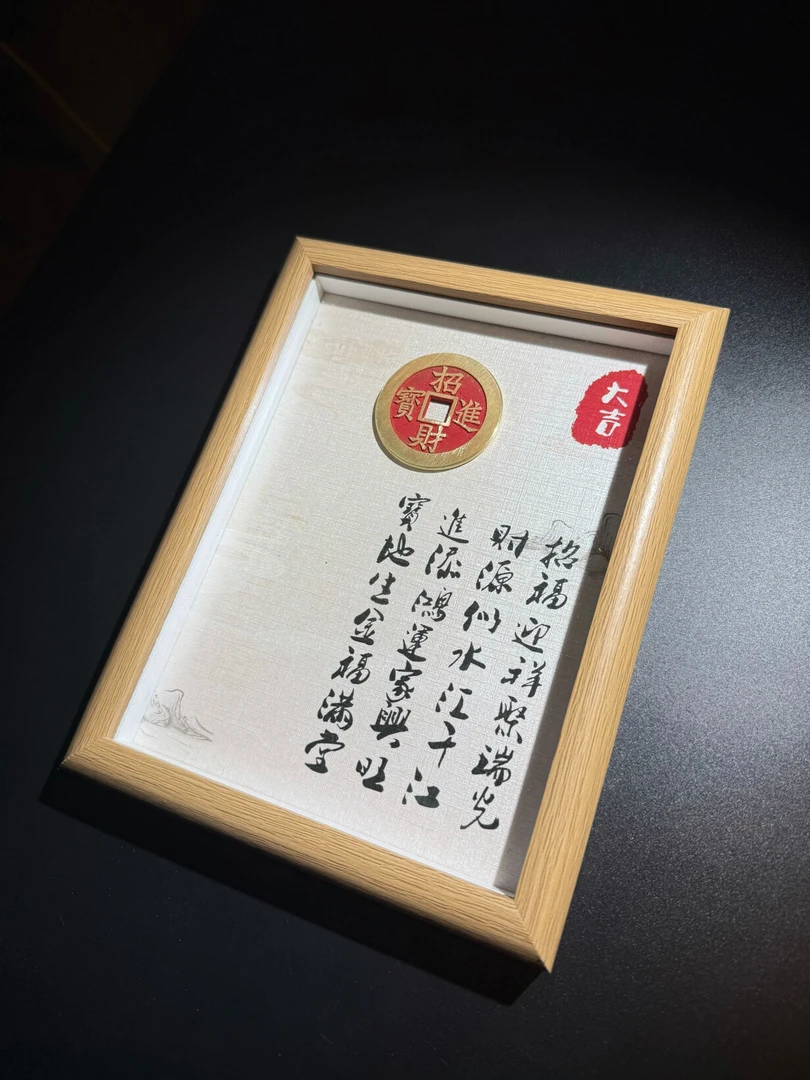 大吉
招財進寶
招福迎祥聚瑞光
財源似水汇千江
進添鴻運家興旺
寶地生金福满堂